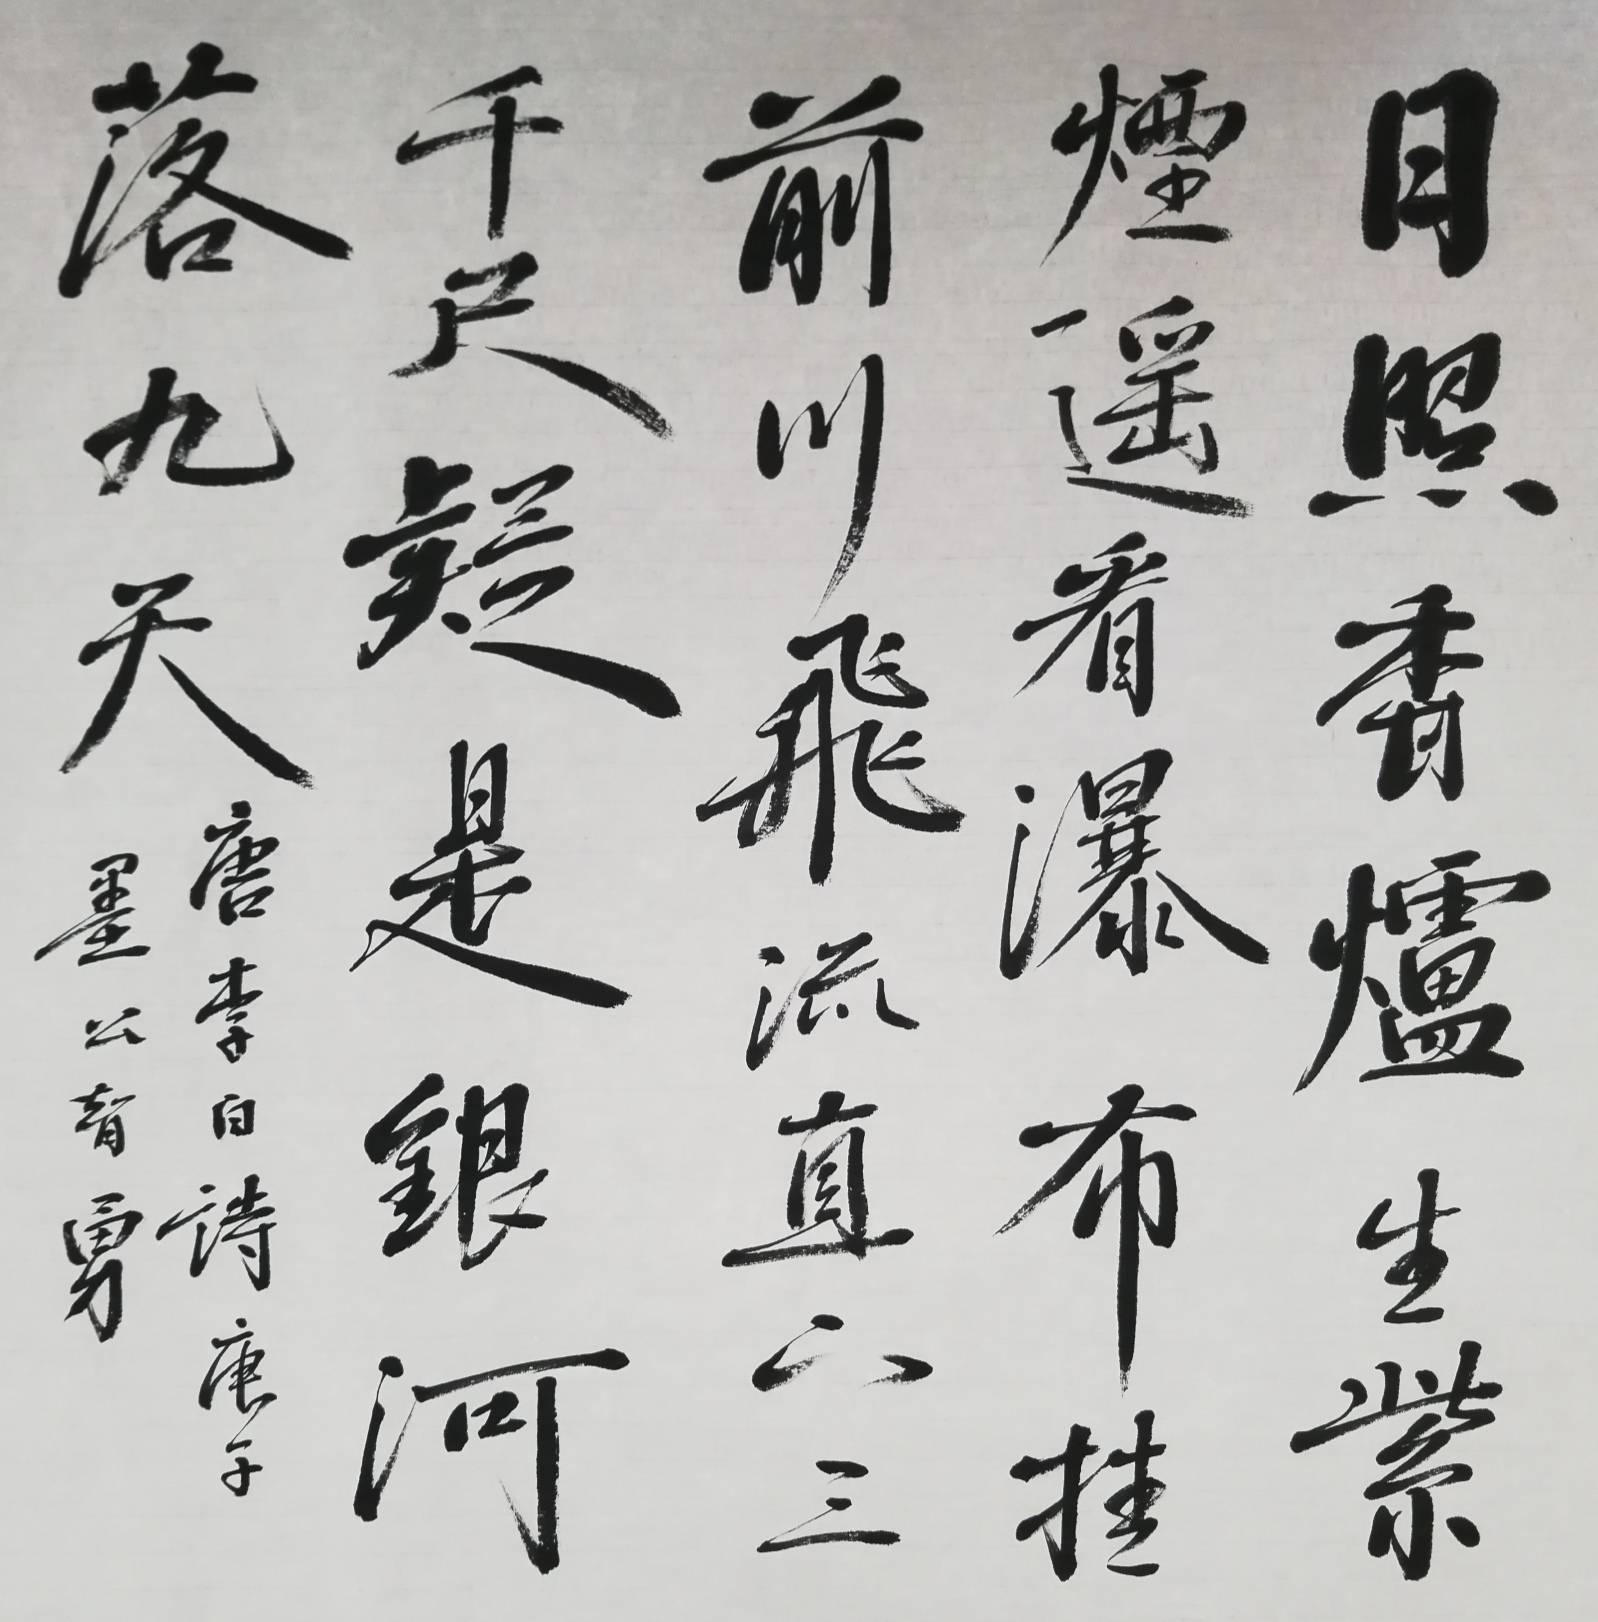 日照香爐生紫
煙遥看瀑布挂
前川飛流直下三
千尺疑是銀河
落九天
唐李白詩庚子
墨公勇